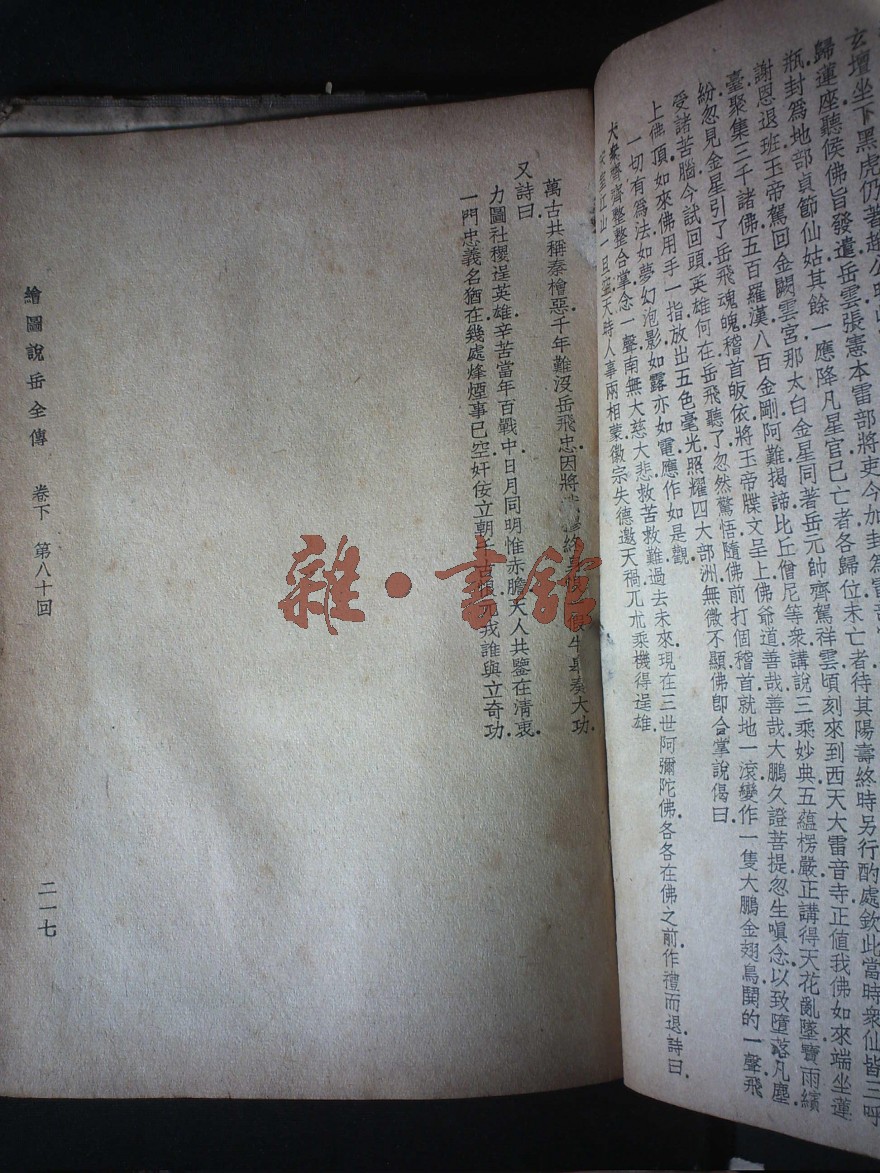 玄壇坐下黑虎仍著趙公明
歸蓮座聽侯佛旨發遣岳雲張憲本雷部將吏今加封為雷
瓶封為地部貞節仙姑其餘一應降凡星官已亡者各歸位未亡者待其陽壽終時另行酌處欽此當時衆仙皆三呼
謝恩退班玉帝駕回金闕雲宮那太白金星同著岳元帥齊駕祥雲頃刻來到西天大雷音寺正值我佛如來端坐蓮
臺聚集三千諸佛五百羅漢八百金剛阿難揭諦比丘僧尼等衆講說三乘妙典五蘊楞嚴正講得天花亂墜寶雨繽
紛忽見金星引了岳飛魂魄稽首皈依將玉帝牒文呈上佛爺道善哉善哉大鵬久證菩提忽生嗔念以致墮落凡塵
受諸苦腦今試回頭英雄何在岳飛聽了忽然驚悟隨佛前打個稽首就地一滾變作一隻大鵬金翅鳥鬨的一聲飛
上佛頂如來佛用手一指放出五色毫光照耀四大部洲無微不顯佛卽合掌說偈曰
一切有為法如夢幻泡影如露亦如電應作如是觀
大衆齊齊整整合掌念一聲南無大慈大悲救苦救難過去未來現在三世阿彌陀佛各各在佛之前作禮而退詩曰
江山一旦空天時人事兩相蒙徽宗失德邀天禍兀朮乘機得逞雄
萬古共稱秦檜惡千年難沒岳飛忠因將 奏大功
又詩曰
力圖社稷逞英雄辛苦當年百戰中日月同明惟赤膽天人共鑒在清衷
一門忠義名猶在幾處烽煙事已空奸佞立朝千古恨 戎誰與立奇功
繪圖說岳全傳 卷下 第八十回
二一七
雜·書館